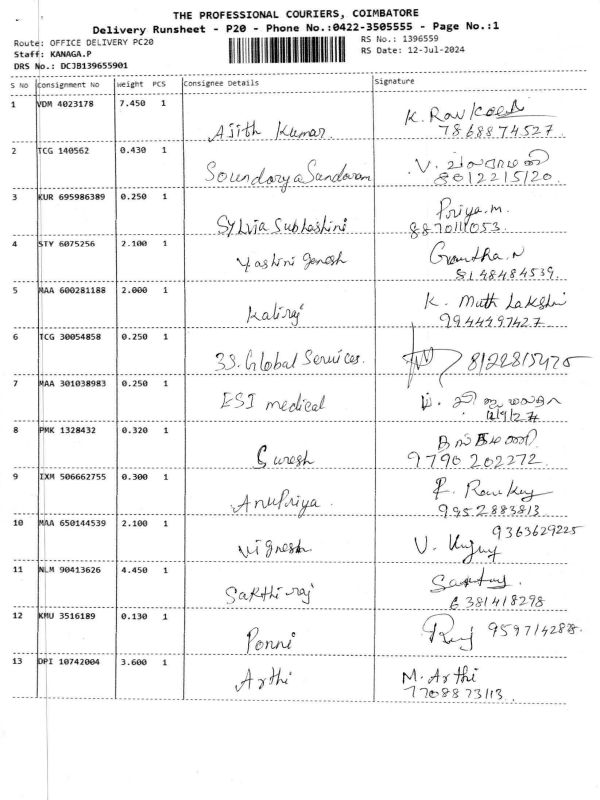 THE PROFESSIONAL COURIERS, COIMBATORE
Delivery Runsheet - P20 - Phone No.:0422-3505555 - Page No.:1
Route: OFFICE DELIVERY PC20
RS No.: 1396559
Staff: KANAGA.P
RS Date: 12-Jul-2024
DRS No.: DCJB139655901
S No Consignment No Weight PCS Consignee Details Signature
1 VDM 4023178 7.450 1
Ajith Kumar
K. Ravi
7868874527
2 TCG 140562 0.430 1
Soundarya Sandaram
V.
8012215120.
3 KUR 695986389 0.250 1
Sylvia Subhashini
Priya.m.
8870111053.
4 STY 6075256 2.100 1
Yashini Genesh
N
8148484539.
5 MAA 600281188 2.000 1
Kaliraj
K. Muth Lakshi
9944497427
6 TCG 30054858 0.250 1
3S. Global Services.
8122815475
7 MAA 301038983 0.250 1
ESI medical
12/9/24
8 PMK 1328432 0.320 1
Suresh
9790202272.
9 IXM 506662755 0.300 1
AnuPriya.
9952883813
10 MAA 650144539 2.100 1
9363629225
Vignesh
V.
11 NLM 90413626 4.450 1
Sakthi raj
6381418298
12 KMU 3516189 0.130 1
Ponni
13 DPI 10742004 3.600 1
Arthi
M. Arthi
7708873113.